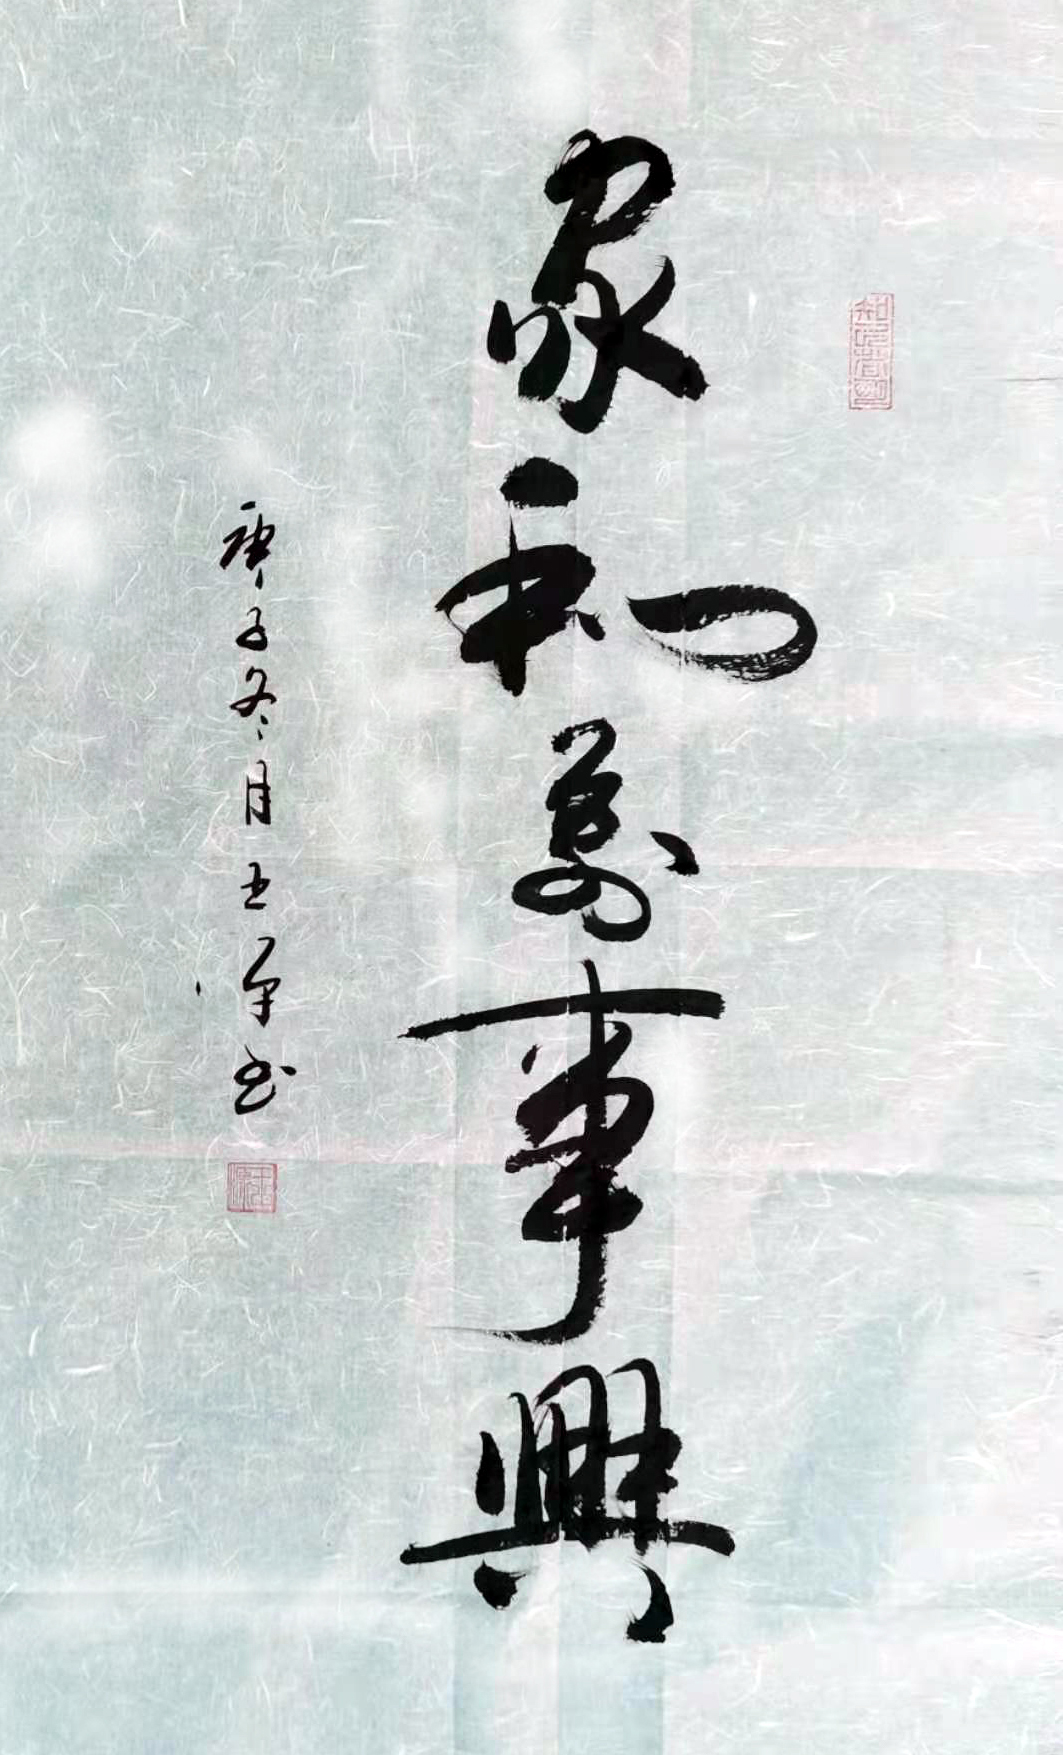 家和萬事興
庚子冬月王军书